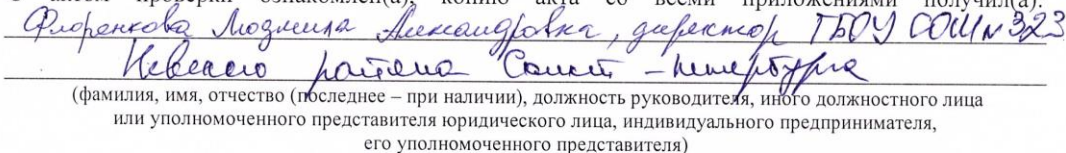 С актом проверки ознакомлен(а), копию акта со всеми приложениями получил(а):
Флоренкова Людмила Александровна, директор ГБОУ СОШ № 323
Невского района Санкт-Петербурга
(фамилия, имя, отчество (последнее – при наличии), должность руководителя, иного должностного лица
или уполномоченного представителя юридического лица, индивидуального предпринимателя,
его уполномоченного представителя)